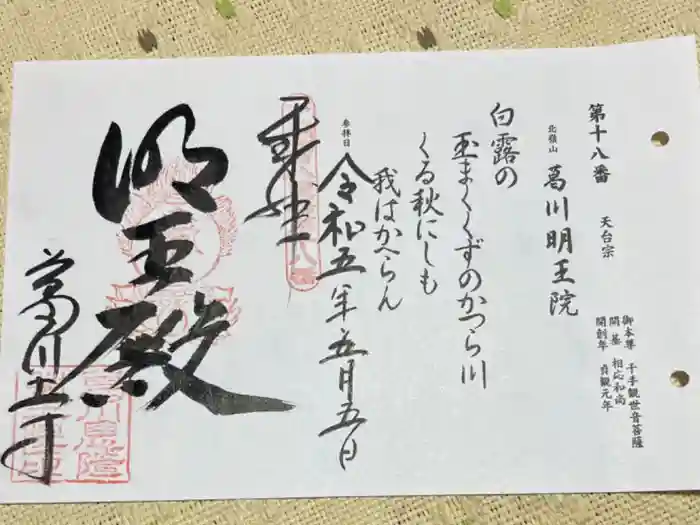 第十八番　天台宗
北嶺山　葛川明王院
御本尊　千手観世音菩薩
開基　相応和尚
開創年　貞観元年
白露の
玉まくくずのかつら川
くる秋にしも
我はかへらん
参拝日　令和五年五月五日
奉拝
明王殿
葛川寺